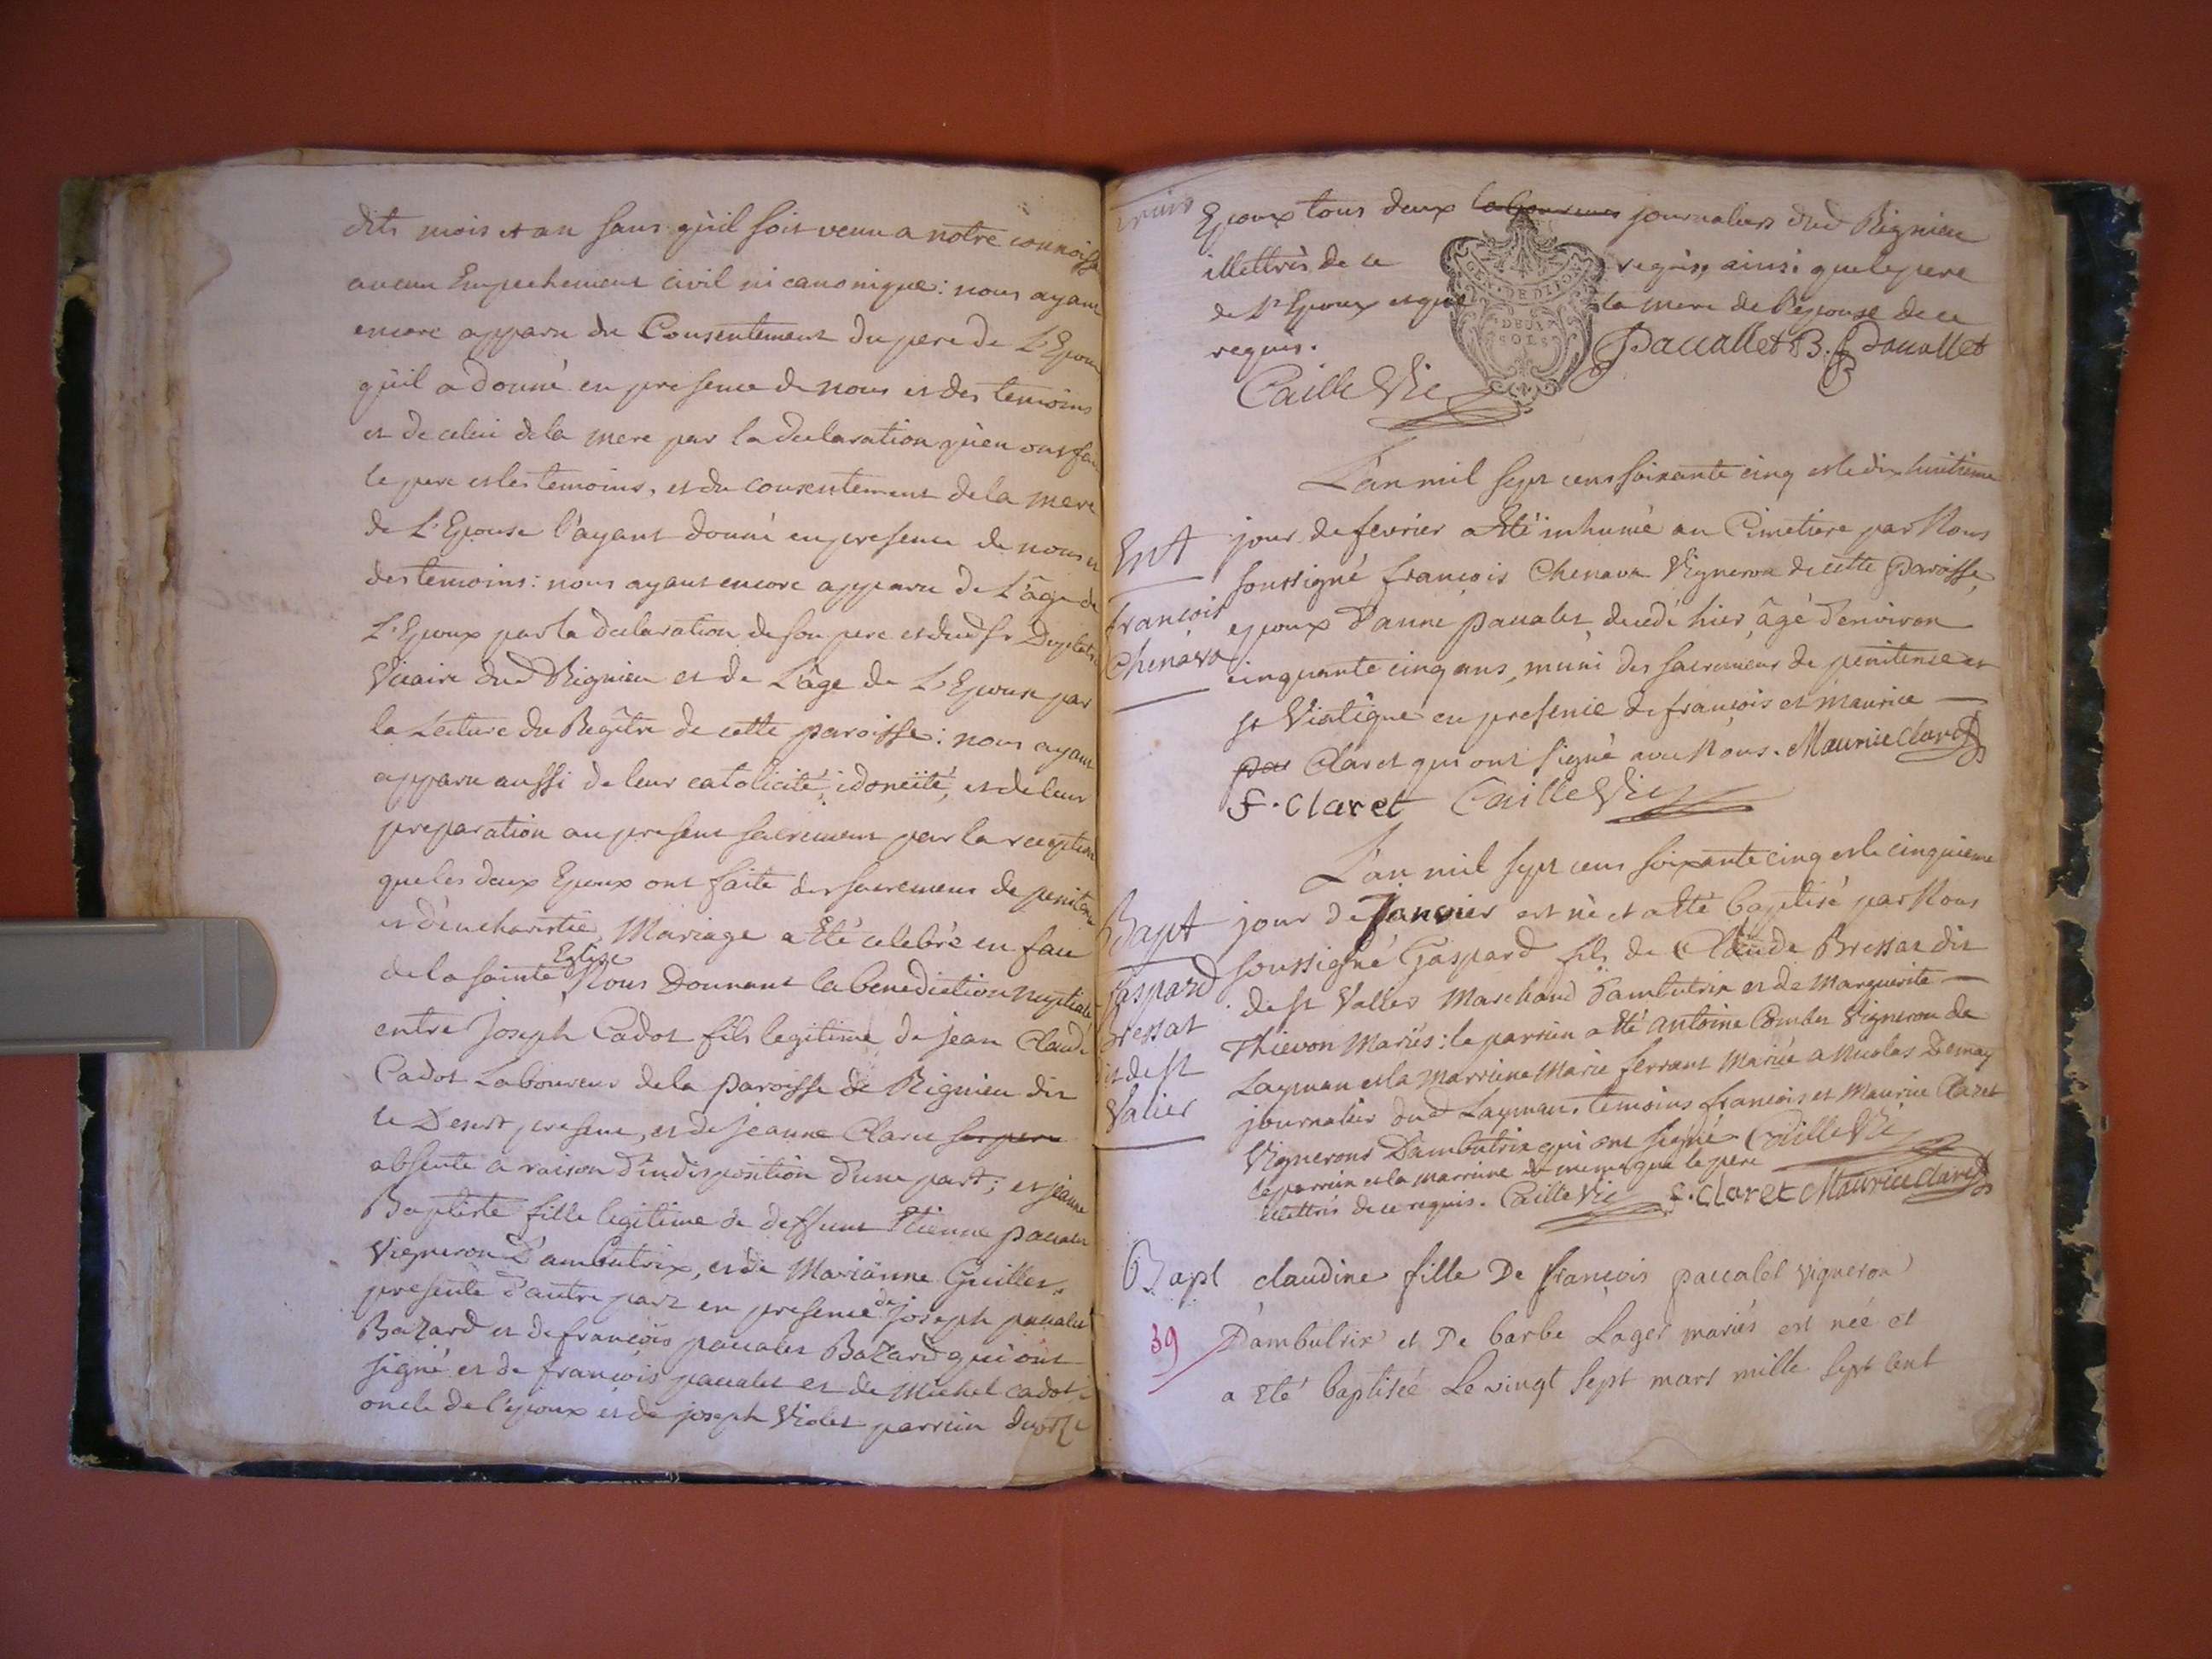 dits mois et an sans qu'il soit venu a notre connoiss
aucun Empechement civil ni canonique : nous ayant
encore apparu du Consentement du pere de L'Epoux
qu'il a donné en presence de nous et des temoins
et de celui de la mere par la declaration qu'en ont fai
le pere et les temoins, et du consentement de la mere
de L'Epouse l'ayant donné en presence de nous et
des temoins : nous ayant encore apparu de L'âge de
L'Epoux par la declaration de son pere et dud Sr
Vicaire dud Rignieu et de L'âge de L'Epouse par
la Lecture du Regître de cette paroisse : nous ayant
apparu aussi de leur catolicité, idonéité, et de leur
preparation au present sacrement par la reception
que les deux Epoux ont faite des sacremens de peniten
et d'eucharistie, Mariage a Eté celebré en face
de la sainte Eglise Nous Donnant la benediction nuptiale
entre Joseph Cadot fils legitime de jean Claude
Cadot Laboureur de la paroisse de Rignieu dit
le Desert presente, et de jeanne Clarie ses pere
absente a raison d'indisposition d'une part ; et jeanne
Baptiste fille legitime de deffunt Etienne pacalet
Vigneron D'ambutrix, et de Marianne Guillet
presente d'autre part en presence de joseph pacalet
Bazard et de françois pacalet Bazard qui ont
signé et de françois pacalet et de Michel cadot
oncle de l'epoux et de joseph Violet parrein
Epoux tous deux laboureurs journaliers dud Rignieu
illettrés de ce requis, ainsi que le pere
de l'Epoux et que la mere de l'epouse de ce
requis.
GEN. DE DIJON
DEUX
SOLS
Pacallet B. Pacallet
Caille Vic
L'an mil sept cens soixante cinq et le dix huitieme
Ent jour de fevrier a Eté inhumé au Cimetiere par Nous
soussigné françois Chenava Vigneron de cette paroisse,
françois epoux d'anne pacalet decedé hier, âgé d'environ
Chenava cinquante cinq ans, muni des sacremens de penitense et
St Viatique en presence de françois et maurice
par Claret qui ont signé avec Nous. Maurice Claret
F. Claret Caille Vic
L'an mil sept cens soixante cinq et le cinquieme
Bapt jour de Janvier est né et a Eté baptisé par Nous
Gaspard soussigné Gaspard fils de Claude Bressat dit
de St Vallier Marchand d'ambutrix et de Marguerite
Bressat Thievon Mariés : le parrein a Eté antoine Combet Vigneron de
dit de St Laymau et la Marreine Marie ferrant Mariée a Nicolas Demay
Valier journalier dud Laymau. temoins françois et Maurice Claret
Vignerons D'ambutrix qui ont signé Caille Vic
le parrein et la marreine de meme que le pere
illettrés de ce requis. Caille Vic F. Claret Maurice Claret
Bapt claudine fille De françois pacalet vigneron
39 D'ambutrix et De barbe Lager mariés est née et
a eté baptisée Le vingt sept mars mille sept cent